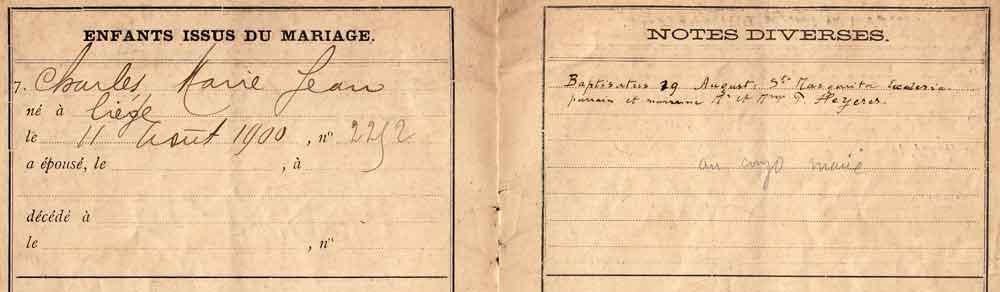 ENFANTS ISSUS DU MARIAGE.
7. Charles Marie Jean
né à Liége
le 11 Août 1900, n° 2252
a épousé, le , à
décédé à
le , n°
NOTES DIVERSES.
Baptisatus 29 August. Ste Margarita Ecclesia.
parrain et marraine Mr et Mme Heyeres.
au congo marié